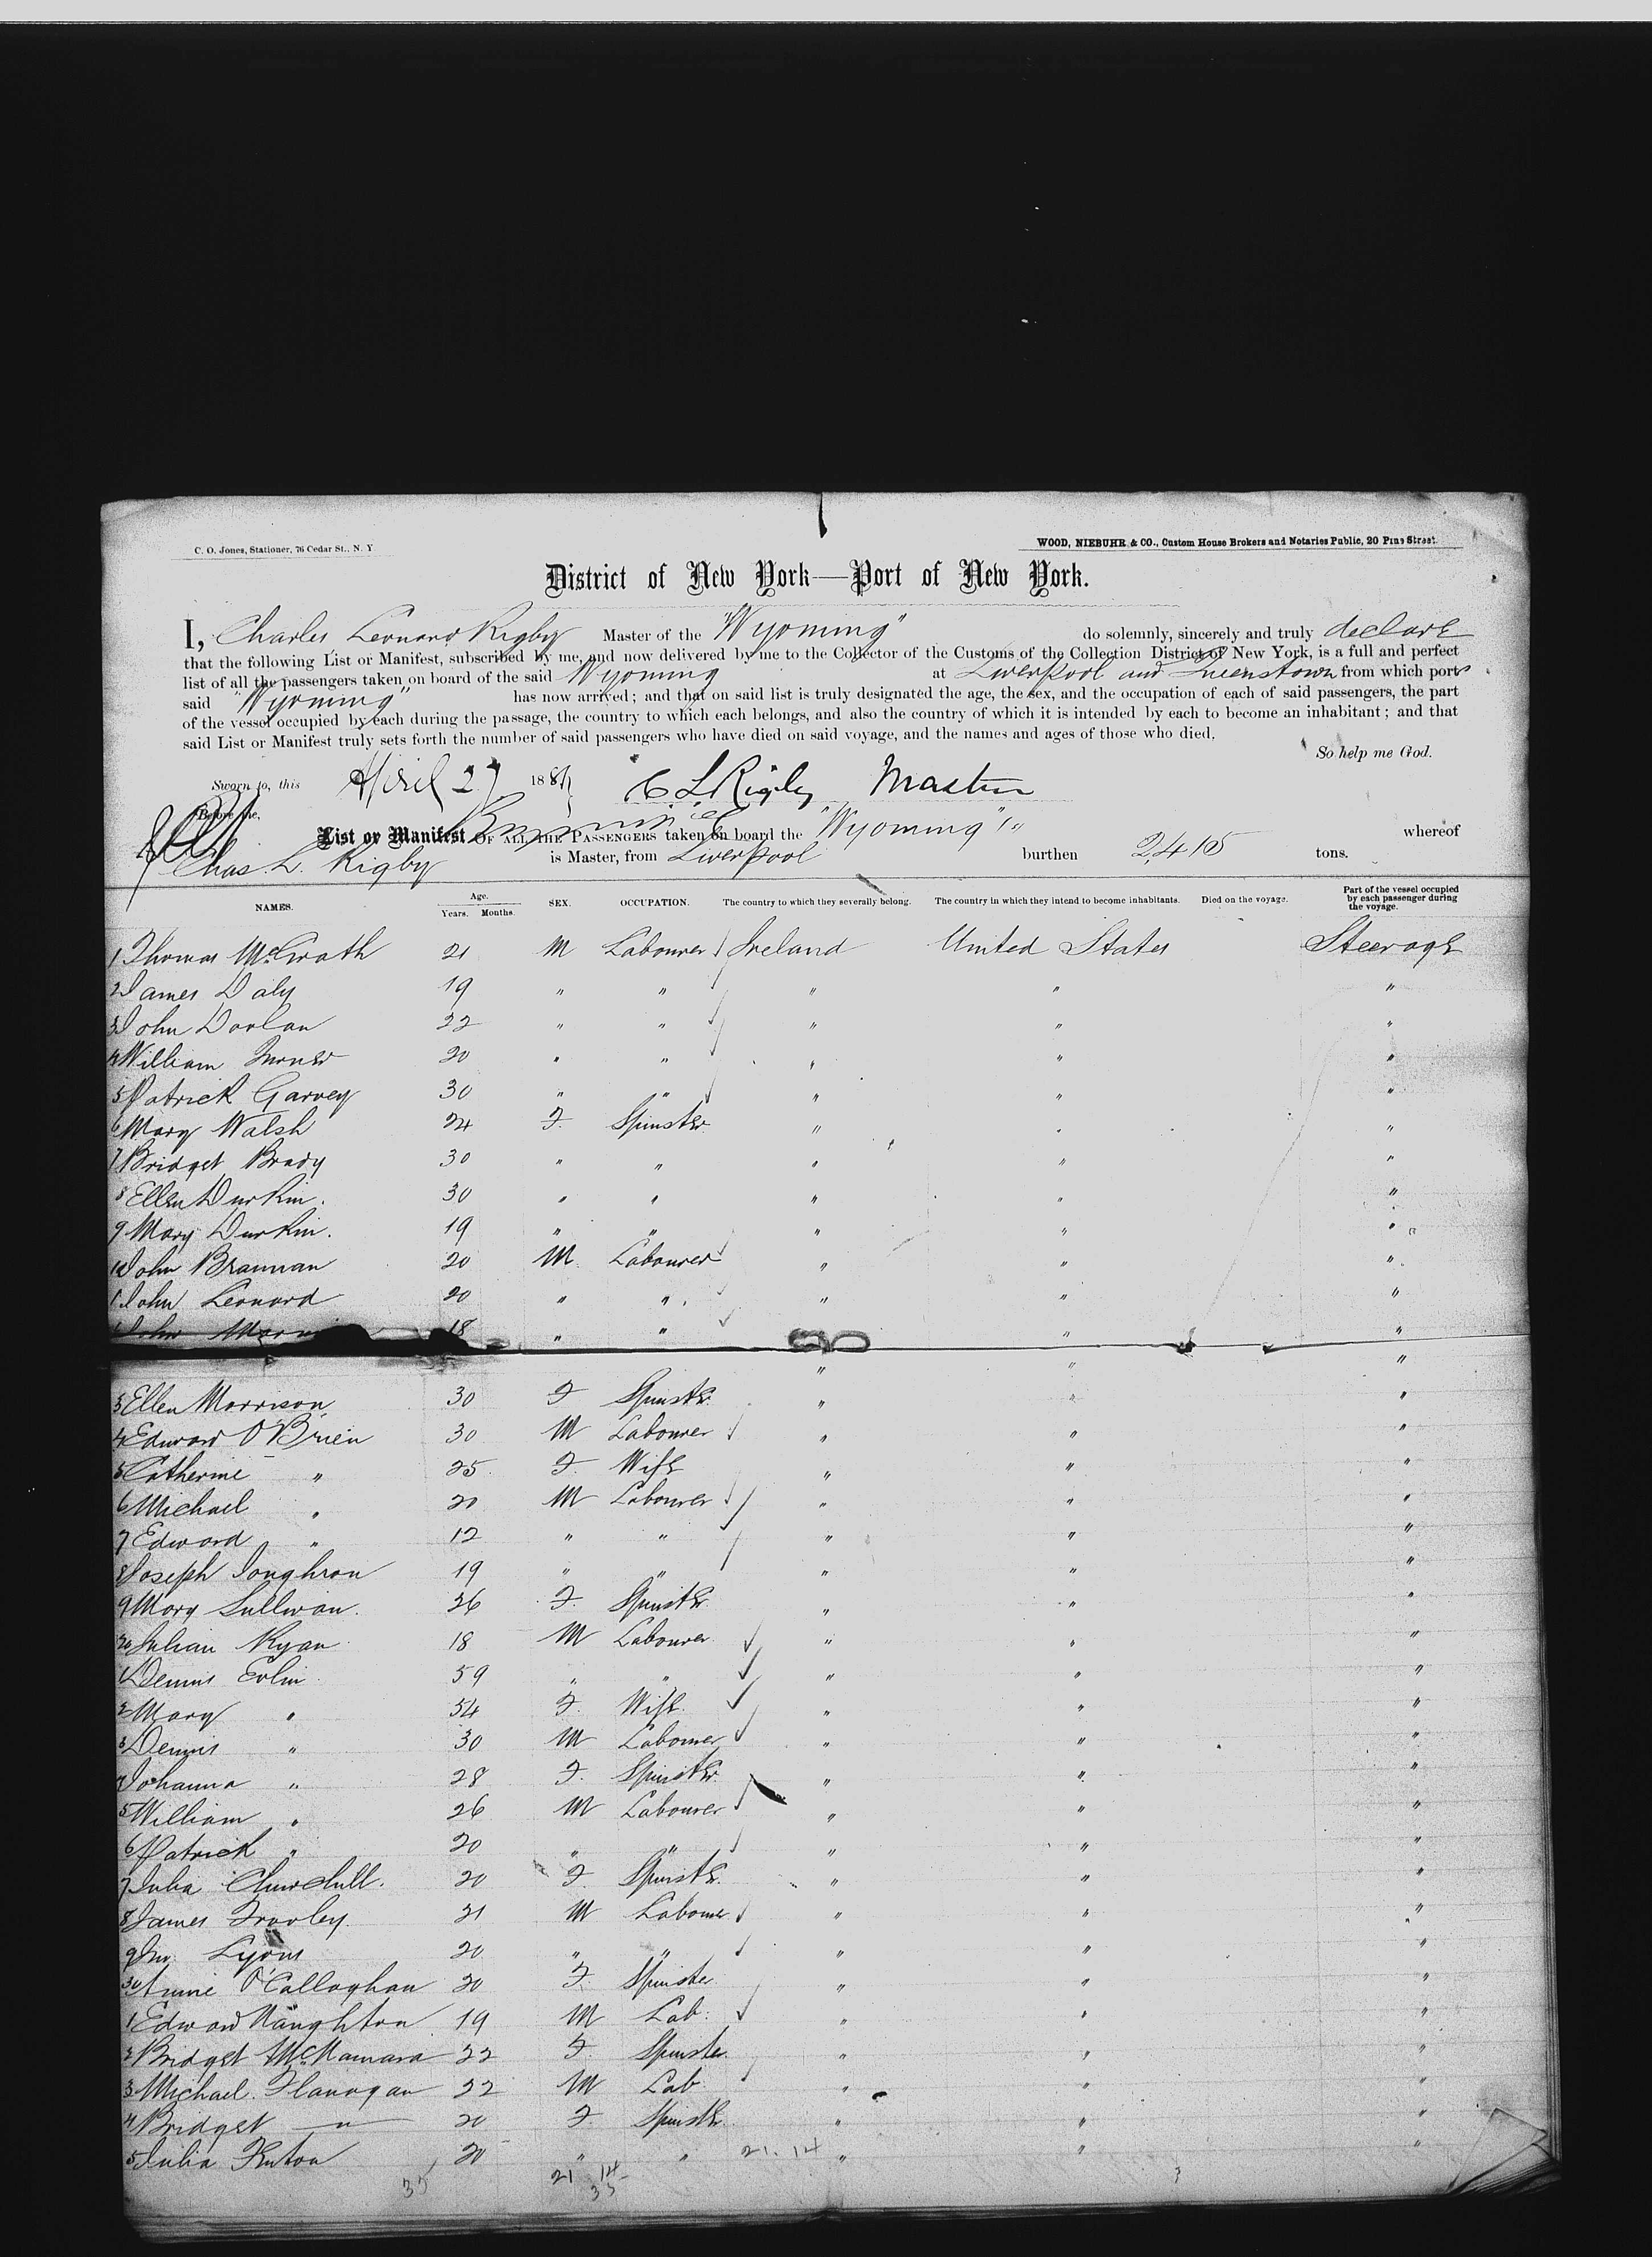 C. O. Jones, Stationer, 76 Cedar St., N. Y
WOOD, NIEBUHR & CO., Custom House Brokers and Notaries Public, 20 Pine Street.
District of New York—Port of New York.
I, Charles Leonard Rigby Master of the "Wyoming" do solemnly, sincerely and truly declare
that the following List or Manifest, subscribed by me, and now delivered by me to the Collector of the Customs of the Collection District of New York, is a full and perfect
list of all the passengers taken on board of the said Wyoming at Liverpool and Queenstown from which ports
said "Wyoming" has now arrived; and that on said list is truly designated the age, the sex, and the occupation of each of said passengers, the part
of the vessel occupied by each during the passage, the country to which each belongs, and also the country of which it is intended by each to become an inhabitant; and that
said List or Manifest truly sets forth the number of said passengers who have died on said voyage, and the names and ages of those who died.
So help me God.
Sworn to, this April 27 188 C L Rigby Master
Before me,
List or Manifest OF ALL THE PASSENGERS taken on board the "Wyoming" whereof
Chas. L. Rigby is Master, from Liverpool burthen 2,415 tons.
NAMES. Age. Years. Months. SEX. OCCUPATION. The country to which they severally belong. The country in which they intend to become inhabitants. Died on the voyage. Part of the vessel occupied by each passenger during the voyage.
1 Thomas McGrath 21 M Labourer Ireland United States Steerage
2 James Daly 19 " " " " "
3 John Doolan 22 " " " " "
4 William 20 " " " " "
5 Patrick Garvey 30 " " " " "
6 Mary Walsh 24 F. Spinster " " "
7 Bridget Brady 30 " " " " "
8 Ellen Durkin. 30 " " " " "
9 Mary Durkin. 19 " " " " "
10 John Brannan 20 M. Labourer " " "
1 John Leonard 20 " " " " "
John 18 " " " "
" " "
3 Ellen Morrison 30 F Spinster " " "
4 Edward O'Brien 30 M Labourer " " "
5 Catherine " 25. F. Wife " " "
6 Michael " 20 M Labourer " " "
7 Edward " 12 " " " " "
8 Joseph 19 " " " " "
9 Mary Sullivan. 26 F. Spinster " " "
20 Julian Ryan 18 M Labourer " " "
1 Dennis 59 " " " " "
2 Mary " 54 F. Wife. " " "
3 Dennis " 30 M Labourer " " "
4 Johanna " 28 F. Spinster " " "
5 William " 26 M Labourer " " "
6 Patrick " 20 " " " " "
7 Julia Churchill. 20 F. Spinster. " " "
8 James 21 M Labourer " " "
9 Jno. Lyons 20 " " " " "
30 Annie O'Callaghan 20 F. Spinster " " "
1 Edward Naughton 19 M Lab. " " "
2 Bridget McNamara 22 F. Spinster " " "
3 Michael Flanagan 22 M Lab. " " "
4 Bridget " 20 F. Spinster. " " "
5 Julia 20 " " 21. 14 " " "
35 21 14
35